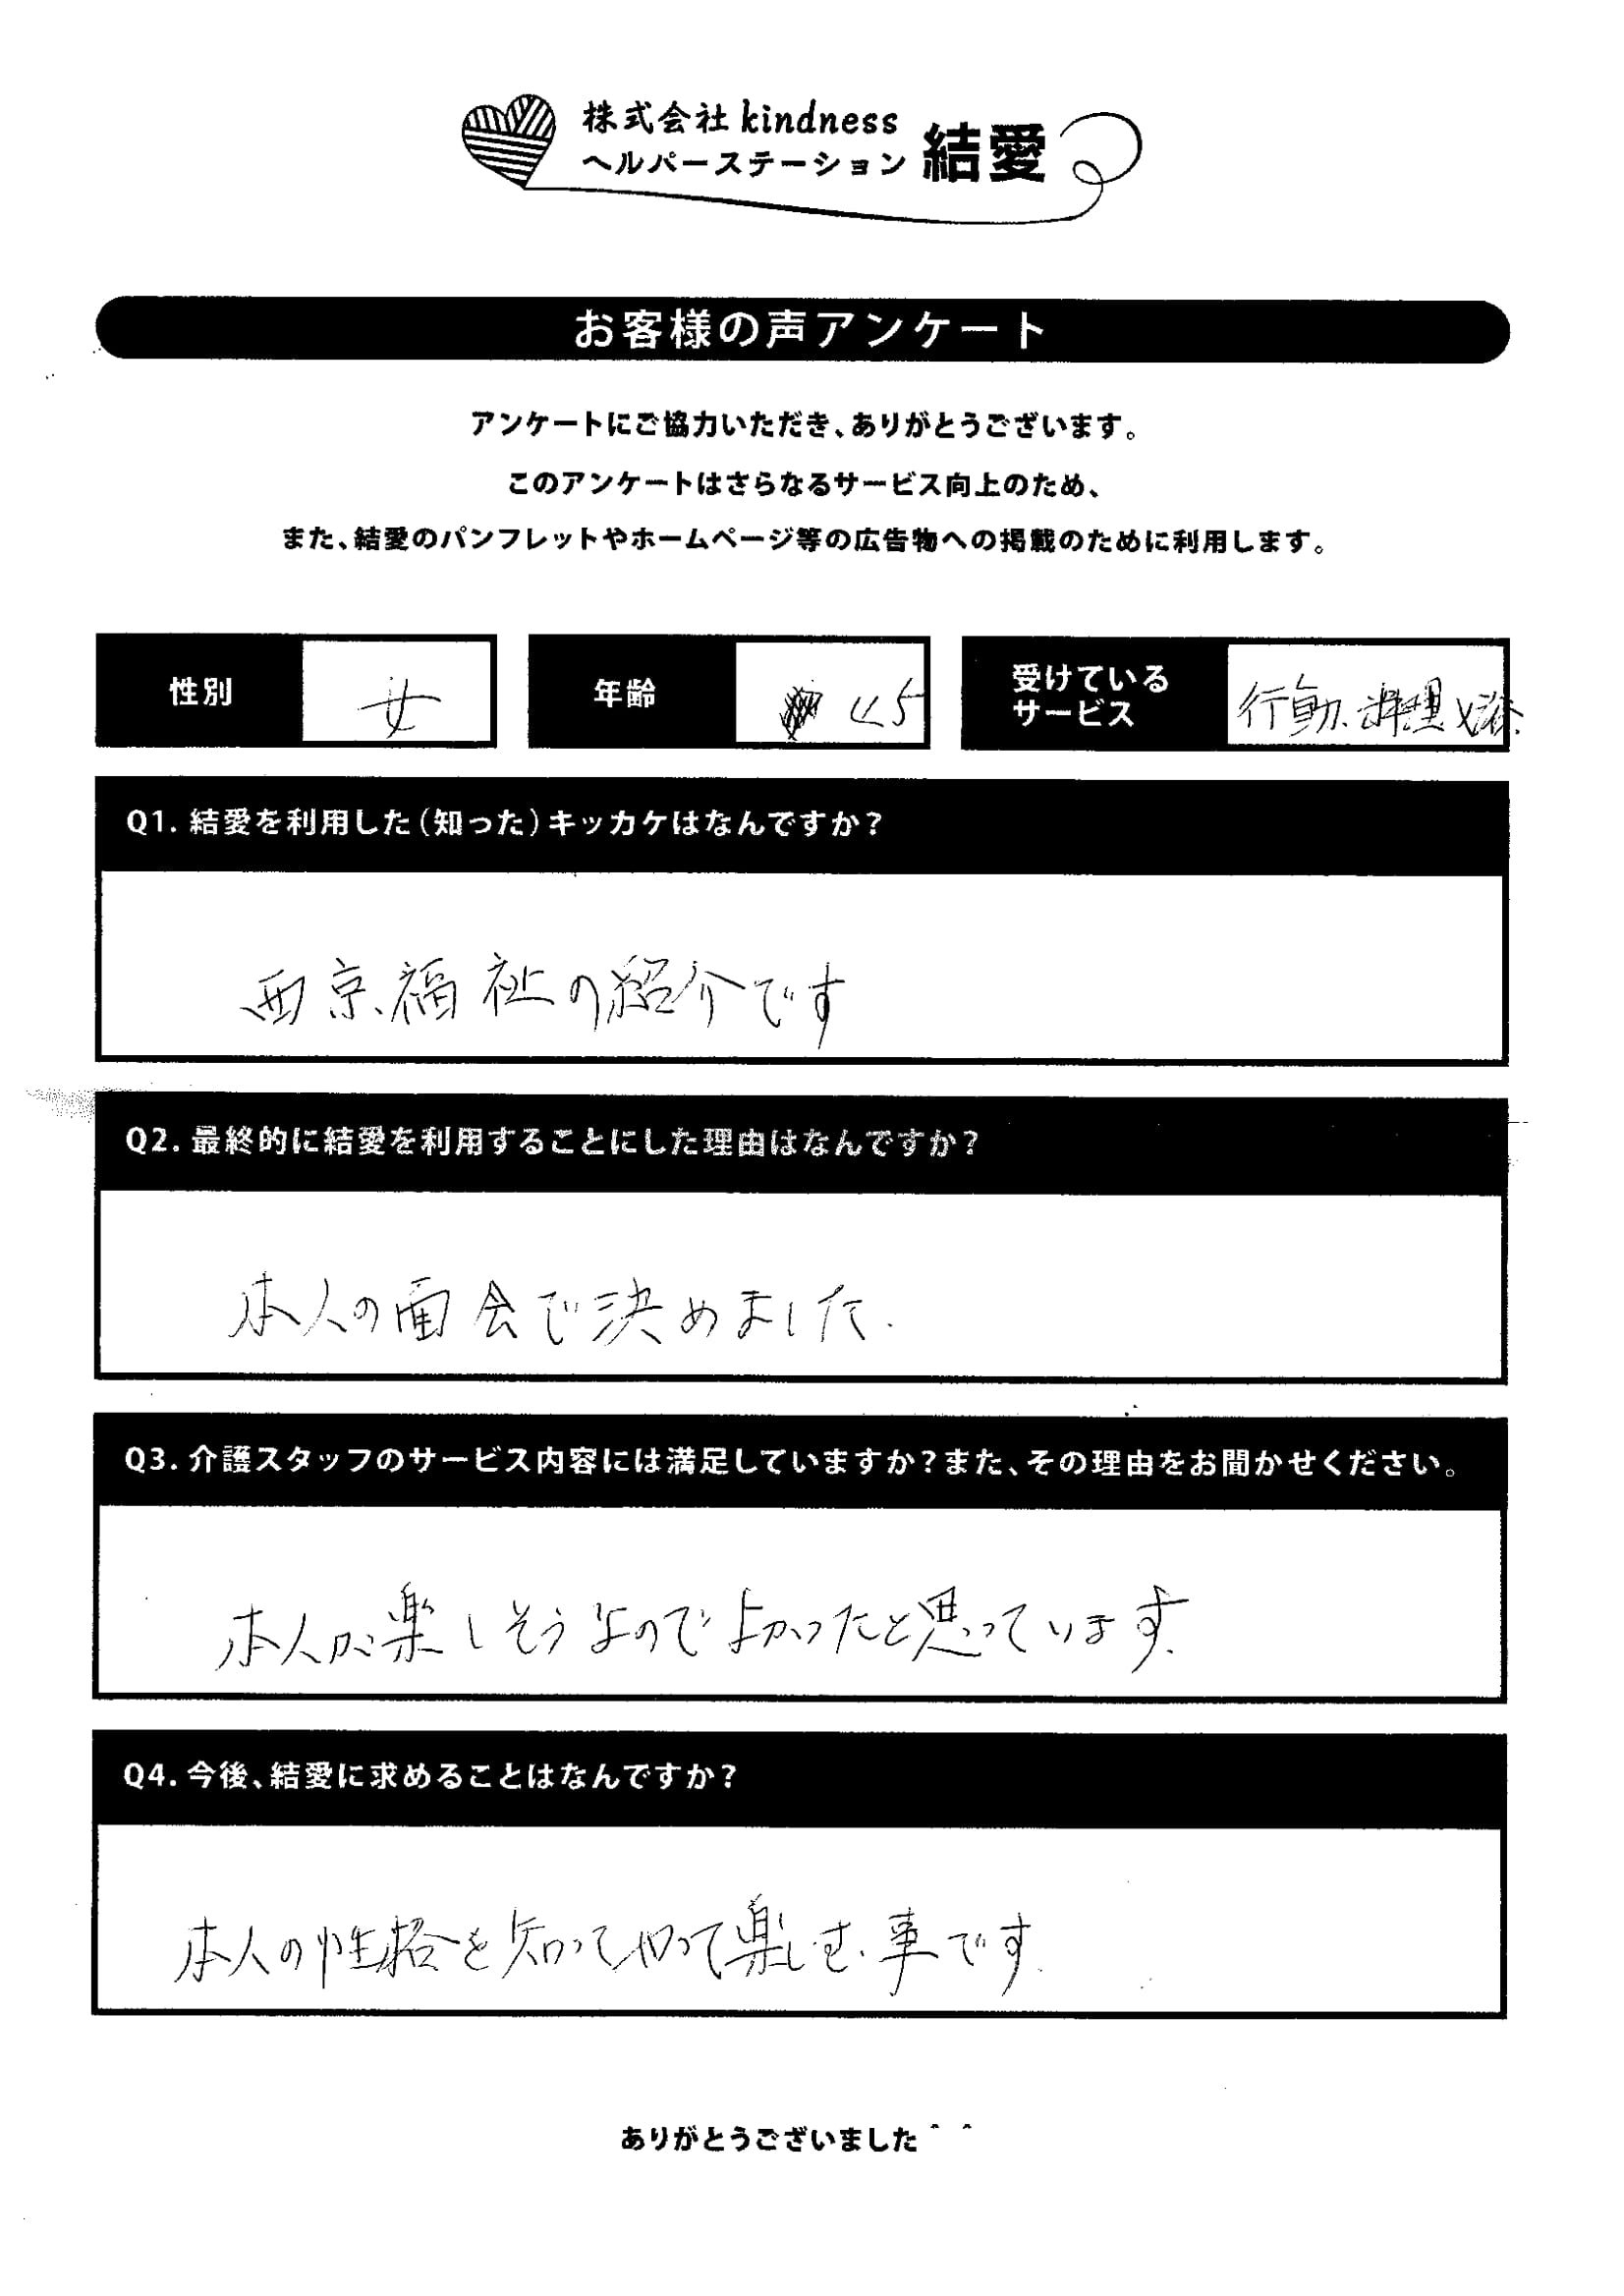 株式会社 kindness
ヘルパーステーション 結愛
お客様の声アンケート
アンケートにご協力いただき、ありがとうございます。
このアンケートはさらなるサービス向上のため、
また、結愛のパンフレットやホームページ等の広告物への掲載のために利用します。
性別 女
年齢
受けている
サービス
行動、料理
Q1. 結愛を利用した(知った)キッカケはなんですか?
西京福祉の紹介です
Q2. 最終的に結愛を利用することにした理由はなんですか?
本人の面会で決めました.
Q3. 介護スタッフのサービス内容には満足していますか?また、その理由をお聞かせください。
本人が楽しそうなのでよかったと思っています.
Q4. 今後、結愛に求めることはなんですか?
本人の性格を知ってやって楽しむ事です.
ありがとうございました＾＾